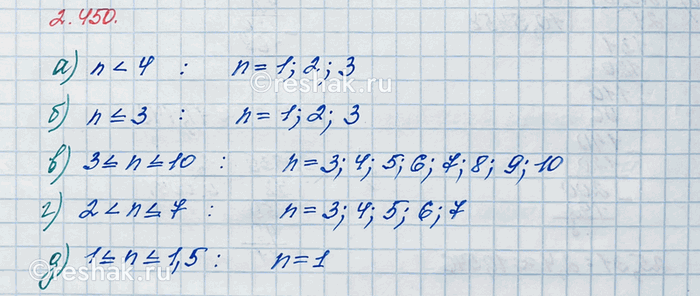 2.450.
а) n < 4 : n = 1; 2; 3
б) n ≤ 3 : n = 1; 2; 3
в) 3 ≤ n ≤ 10 : n = 3; 4; 5; 6; 7; 8; 9; 10
г) 2 < n ≤ 7 : n = 3; 4; 5; 6; 7
д) 1 ≤ n ≤ 1,5 : n = 1
©reshak.ru
©reshak.ru